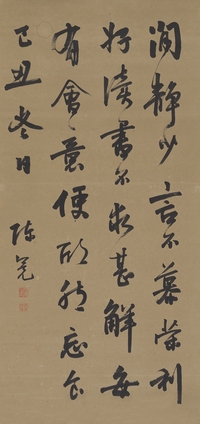 閒靜少言不慕榮利
好讀書不求甚解每
有會意便欣然忘食
己丑冬日 陳冕